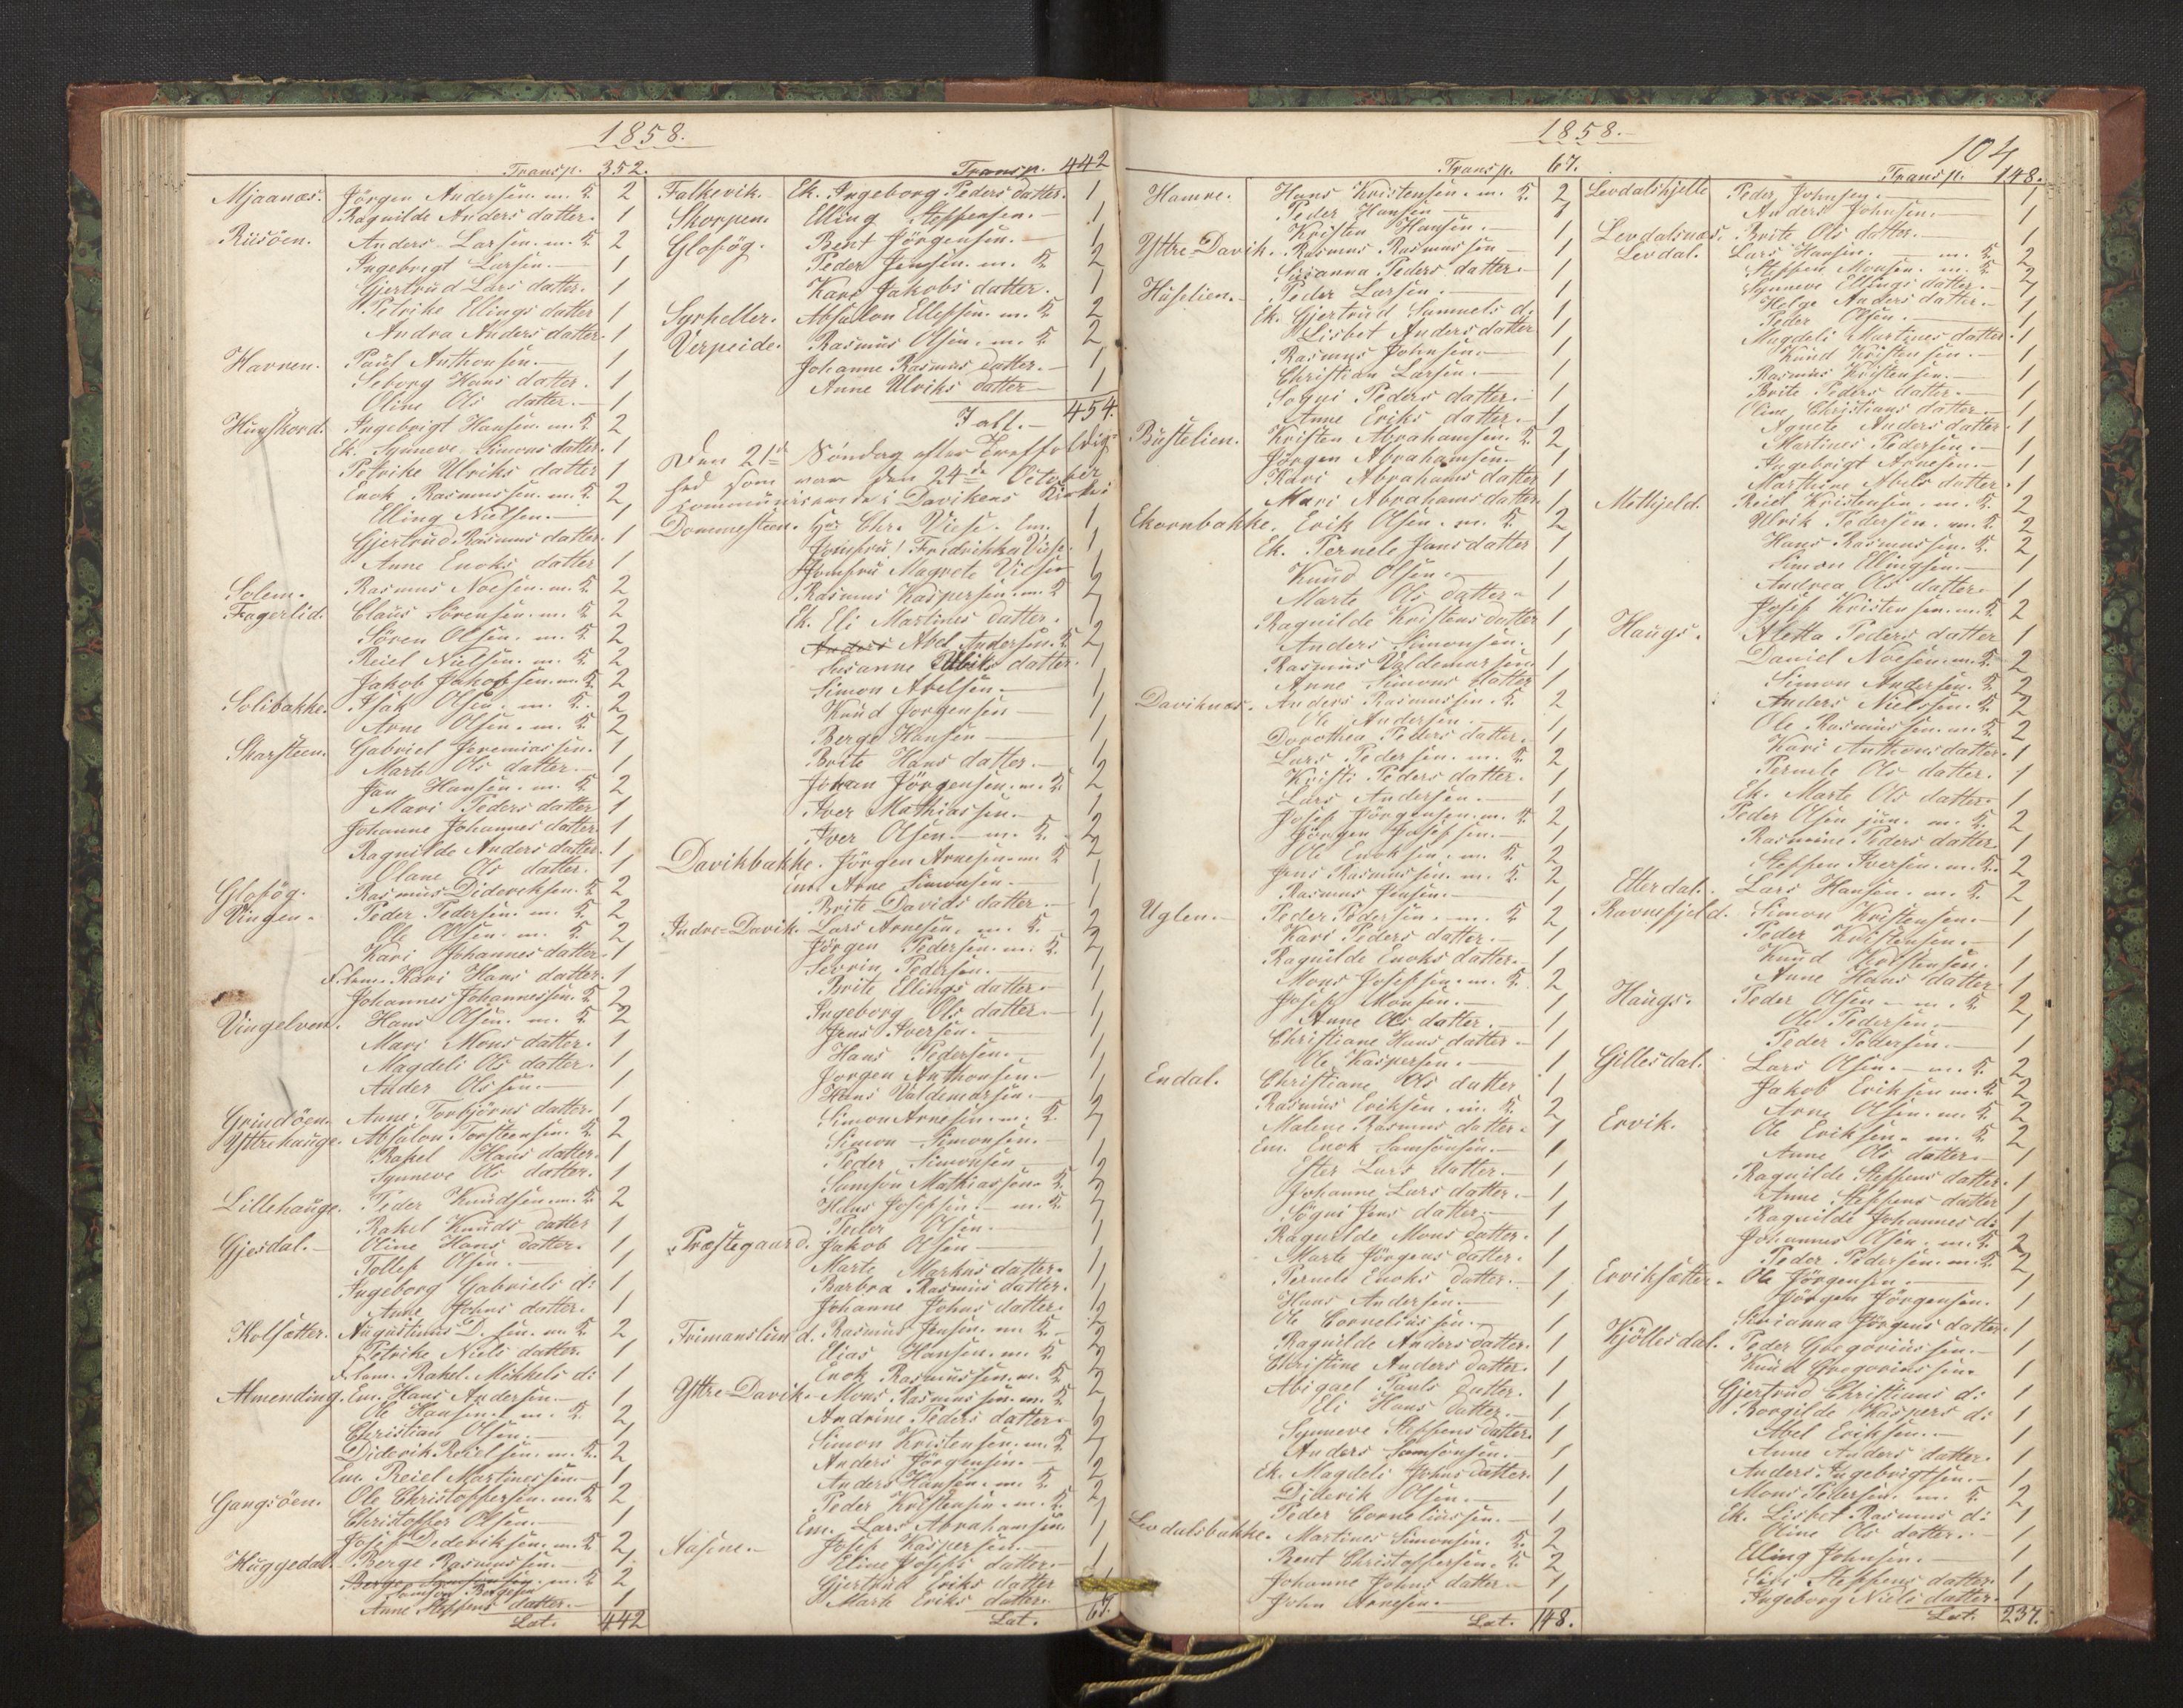 1858.
Transp. 352.
Mjaanæs. Jörgen Andersen. m. K. 2
Ragnilde Anders datter. 1
Riisöen. Anders Larsen. m. K. 2
Ingebrigt Larsen. 1
Gjertrud Lars datter. 1
Petrike Ellings datter 1
Andra Anders datter. 1
Havnen. Paul Anthonsen. 1
Seborg Hans datter. 1
Oline Ols datter. 1
Hunskord. Ingebrigt Hansen. m. K. 2
Ek. Synneve Simons datter. 1
Petrike Ulriks datter 1
Enok Rasmussen. m. K. 2
Elling Nielsen. 1
Gjertrud Rasmus datter. 1
Anne Enoks datter 1
Solem. Rasmus Noesen. m. K. 2
Fagerlid. Claus Sörensen. m. K. 2
Sören Olsen. m. K. 2
Reiel Nielsen. m. K. 2
Jakob Jakobsen. m. K. 2
Solibakke. Isak Olsen. m. K. 2
Arne Olsen. m. K. 2
Skarsteen. Gabriel Jeremiassen. 1
Marte Ols datter. 1
Jan Hansen. m. K. 2
Mari Peders datter 1
Johanne Johannes datter. 1
Ragnilde Anders datter. 1
Olane Ols datter. 1
Glosög. Rasmus Dideriksen. K. 2
Vingen. Peder Pedersen. m. K. 2
Ole Olsen. m. K. 2
Kari Johannes datter. 1
F.lem. Kari Hans datter. 1
Johannes Johannessen. K. 2
Vingelven. Hans Olsen. m. K. 2
Mari Mons datter. 1
Magdeli Ols datter. 1
Ander Olssen. 1
Grindöen. Anne Torbjörns datter. 1
Yttrehauge. Absalon Torsteensen. K. 2
Rakel Hans datter. 1
Synneve Ols datter. 1
Lillehauge. Peder Knudsen m. K. 2
Rakel Knuds datter 1
Gjesdal. Oline Hans datter. 1
Tollef Olsen. 1
Ingeborg Gabriels d: 1
Anne Johns datter. 1
Kolsætter. Augustinus D. sen. m. K. 2
Petrike Niels datter. 1
F.lem. Rakel Mikkels d: 1
Almending. Em. Hans Andersen. 1
Ole Hansen. m. K. 2
Christian Olsen. 1
Diderik Reielsen. m. K. 2
Em. Reiel Martinessen. 1
Gangsöen. Ole Christoffersen. m. K. 2
Christoffer Olsen. 1
Josef Dideriksen. m. K. 2
Huggedal. Berge Rasmussen. 1
Samson Bergesen m. K. 2
Anne Steffens datter. 1
Lat. 442
Transp. 442
Falkevik. Ek. Ingeborg Peders datter. 1
Skorpen. Elling Steffensen. 1
Glosög. Bent Jörgensen. 1
Peder Jensen. m. K. 2
Kari Jakobs datter. 1
Syrheller. Absalon Ellefsen. m. K. 2
Verpeide. Rasmus Olsen. m. K. 2
Johanne Rasmus datter. 1
Anne Ulriks datter 1
Tall. 454.
Den 21de Söndag efter Treffoldig-
hed som var den 24de October
communicerede i Davikens Kirke
Dommesteen. Hr Chr. Viese. Em. 1
Jomfru Fredrikka Viese. 1
Jomfru Magrete Viese 1
Rasmus Kaspersen. m. K. 2
Ek. Eli Martines datter. 1
Anders Abel Andersen. K. 2
Susanne Ulriks datter. 1
Simon Abelsen. 1
Knud Jorgensen 1
Berge Hansen 1
Brite Hans datter. 1
Johan Jörgensen. m. K. 2
Iver Mathiassen. 1
Iver Olsen. m. K. 2
Davikbakke. Jörgen Arnesen. m. K. 2
Em. Arne Simonsen. 1
Brite Davids datter. 1
Indre-Davik. Lars Arnesen. m. K. 2
Jörgen Pedersen. m. K. 2
Sevrin Pedersen. 1
Brite Ellings datter. 1
Ingeborg Ols datter. 1
Jens Iversen. 1
Hans Pedersen. 1
Jorgen Anthonsen. 1
Hans Valdemarsen. 1
Simon Arnesen. m. K. 2
Simon Simonsen. 1
Peder Simonsen 1
Samson Mathiassen. K. 2
Hans Josefsen. m. K. 2
Peder Olsen. 1
Præstegaard. Jakob Olsen 1
Marte Markus datter. 1
Barbra Rasmus datter. 1
Johanne Johns datter. 1
Frimanslund. Rasmus Jensen. m. K. 2
Elias Hansen. m. K. 2
Enok Rasmussen. m. K. 2
Yttre-Davik. Mons Rasmussen. m. K. 2
Andrine Peders datter. 1
Simon Kristensen. m. K. 2
Anders Jörgensen. 1
Anders Hansen. m. K. 2
Peder Kristensen. m. K. 2
Em. Lars Abrahamsen. 1
Aasene. Josef Kaspersen. 1
Eline Josefs datter. 1
Gjertrud Eriks datter
Mart Eriks datter.
Lat. 67.
1858.
104
Transp. 67.
Hamre. Hans Kristensen. m. K. 2
Peder Hansen 1
Kristen Hansen. 1
Yttre Davik. Rasmus Rasmussen 1
Susanna Peders datter. 1
Huselien. Peder Larsen. 1
Ek. Gjertrud Samuels d. 1
Lisbet Anders datter 1
Rasmus Johnsen. 1
Christian Larsen. 1
Sogni Peders datter. 1
Anne Eriks datter. 1
Bustelien. Kristen Abrahamsen. K. 2
Jörgen Abrahamsen. 1
Kari Abrahams datter 1
Mari Abrahams datter. 1
Ekornbakke. Erik Olsen. m. K. 2
Ek. Pernele Jans datter 1
Knud Olsen. 1
Marte Ols datter. 1
Ragnilde Kristens datter 1
Anders Simonsen. 1
Rasmus Valdemarsen. 1
Anne Simons datter 1
Daviknæs. Anders Rasmussen. K. 2
Ole Andersen. 1
Dorothea Peders datter. 1
Lars Pedersen. m. K. 2
Kristi Peders datter. 1
Lars Andersen. 1
Josef Jörgensen. m. K. 2
Jörgen Josefsen. 1
Ole Enoksen. m. K. 2
Jens Rasmussen. m. K. 2
Rasmus Jensen. 1
Uglen. Peder Pedersen. m. K. 2
Kari Peders datter. 1
Ragnilde Enoks datter. 1
Mons Josefsen. m. K. 2
Josef Monsen. 1
Anne Ols datter. 1
Christiane Hans datter. 1
Ole Kaspersen. 1
Endal. Christiane Ols datter 1
Rasmus Eriksen. m. K. 2
Malene Rasmus datter. 1
Em. Enok Samsonsen. 1
Ester Lars datter. 1
Johanne Lars datter. 1
Sögni Jens datter. 1
Ragnilde Mons datter. 1
Marte Jörgens datter. 1
Pernele Enoks datter. 1
Hans Andersen. 1
Ole Corneliussen. 1
Ragnilde Anders datter. 1
Christine Anders datter. 1
Abigael Pauls datter. 1
Eli Hans datter. 1
Synneve Steffens datter. 1
Anders Samsonsen. 1
Ek. Magdeli Johns datter. 1
Diderik Olsen. 1
Peder Corneliussen. 1
Levdalsbakke. Martines Simonsen. K. 2
Bent Christoffersen. K. 2
Johanne Johns datter. 1
John Arnesen. 1
Lat. 148.
Transp. 148.
Levdalshjelle Peder Johnsen. 1
Anders Johnsen. 1
Levdalsnæs. Brite Ols datter. 1
Levdal. Lars Hansen. m. K. 2
Steffen Monsen. m. K. 2
Synneve Ellings datter. 1
Helge Anders datter. 1
Peder Olsen. 1
Magdeli Martines datter. 1
Knud Kristensen. 1
Rasmus Kristensen. 1
Brite Peders datter. 1
Oline Christians datter. 1
Agnete Anders datter. 1
Martines Pedersen. 1
Ingebrigt Arnesen. 1
Marthine Abels datter. 1
Mothjeld. Reiel Kristensen. m. K. 2
Ulrik Pedersen. m. K. 2
Hans Rasmussen. K. 2
Simon Ellingsen. 1
Andrea Ols datter. 1
Josef Kristensen. m. K. 2
Haugs. Aletta Peders datter 1
Daniel Noesen. m. K. 2
Simon Andersen. K. 2
Anders Nielssen. K. 2
Ole Rasmussen. m. K. 2
Kari Anthons datter. 1
Pernele Ols datter. 1
Ek. Marte Ols datter. 1
Peder Olsen jun. m. K. 2
Rasmine Peders datter. 1
Steffen Iversen. m. K. 2
Etterdal. Lars Hansen. m. K. 2
Ravnsfjeld. Simon Kristensen. 1
Peder Kristensen. 1
Knud Kristensen. 1
Anne Hans datter 1
Haugs. Peder Olsen. m. K. 2
Ole Pedersen. 1
Peder Pedersen. 1
Gillesdal. Lars Olsen. m. K. 2
Jakob Eriksen m. K. 2
Arne Olsen. m. K. 2
Ervik. Ole Eriksen. m. K. 2
Anne Ols datter. 1
Ragnilde Steffens datter. 1
Anne Steffens datter 1
Ragnilde Johannes d: 1
Johannes Olsen. m. K. 2
Peder Pedersen. m. K. 2
Erviksætter. Ole Jörgensen. 1
Jörgen Jörgensen. 1
Susianna Jörgens datter. 1
Kjöllesdal. Peder Gregoriussen. 1
Knud Gregoriussen. 1
Gjertrud Christians d: 1
Borgilde Kaspers d: 1
Abel Eriksen. 1
Anne Anders datter. 1
Anders Ingebrigtsen. 1
Mons Pedersen. m. K. 2
Ek. Lisbet Rasmus d: 1
Oline Ols datter. 1
Elling Johnsen. 1
Siri Steffens datter. 1
Ingeborg Niels datter. 1
Lat. 237.